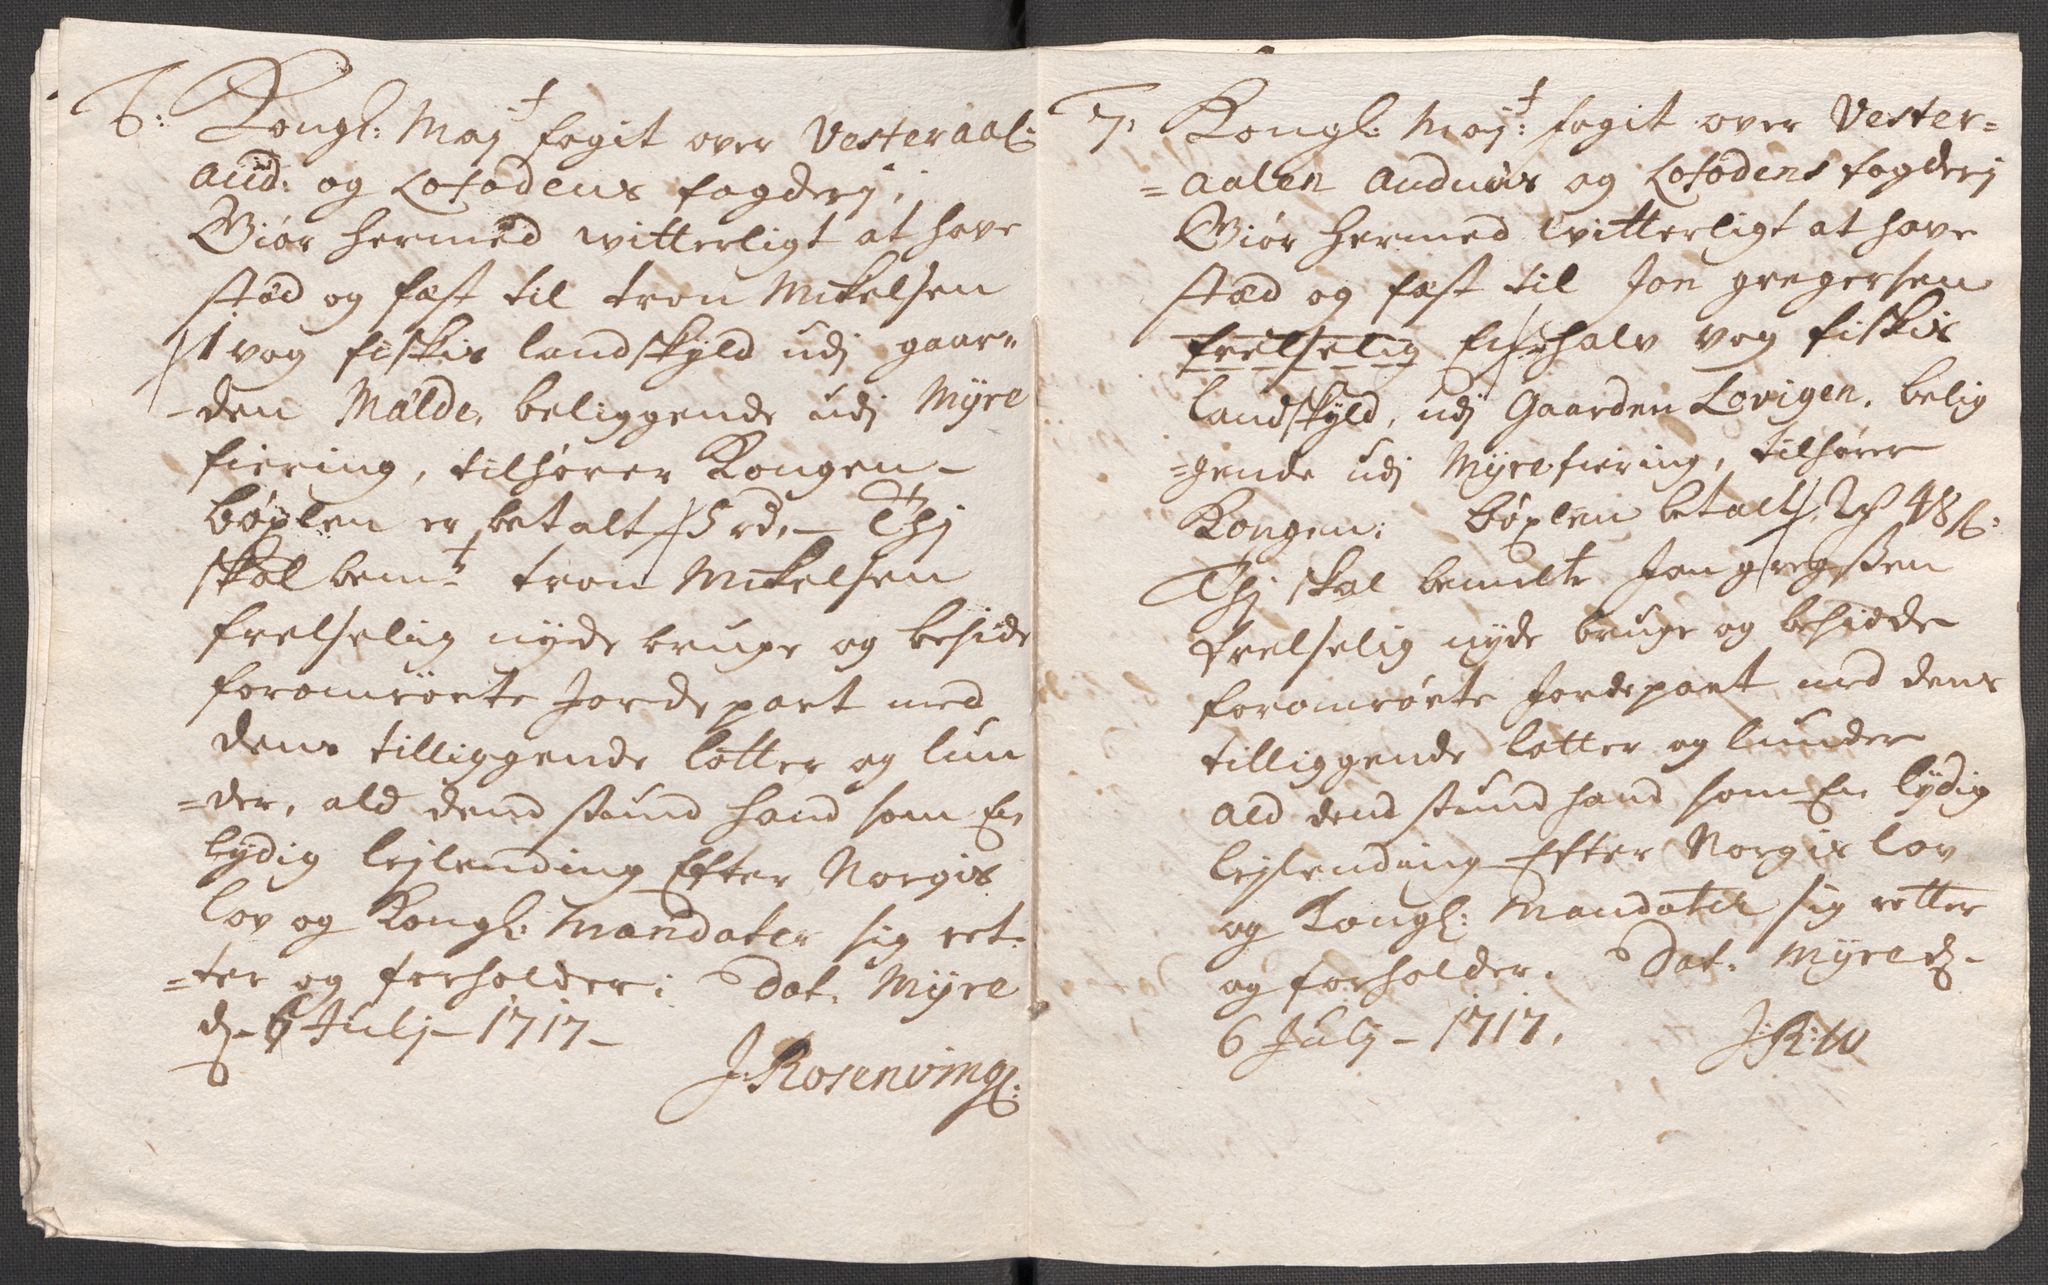 6: Kongl: Maj:t fogit over Vesteraal:
And: og Lofodens fogderj;
Giör hermed witterligt at have
stød og fæst til tron Mikelsen
/1 vog fiskis landskyld udj gaar=
=den Målde, beliggende udj Myre
fiering, tilhører Kongen –
böxlen er betalt /5 rd. – Thj
skal bem:te tron Mikelsen
frelselig nyde bruge og beside
foromrörte Jorde part med
dens tilliggende lotter og lun
=der, ald dend stund hand som En
lydig lejlending Efter Norgis
lov og Kongl: Mandater sig ret=
=ter og forholder; Dat. Myre
d. 6 Julj – 1717 –
J: Rosenving:
7, Kongl: Maj:t fogit over Vester=
=aalen Andnæs og Lofodens fogderj
Giör hermed witterligt at have
stæd og fæst til Jon gregersen
frelselig En /½ halv vog fiskis
landskyld, udj Gaarden Lovigen, belig
=gende udj Myre fiering, tilhører
Kongen; böxlen betalt /: 2 48 s:
Thj skal bemelte Jon gregersen
frelselig nyde bruge og besidde
foromrörte Jorde part med dens
tilliggende lotter og lunder
ald dend stund hand som En lydig
lejlending Efter Norgis lov
og Kongl: Mandater sig retter
og forholder. Dat. Myre d.
6 Julj – 1717. J:R:W